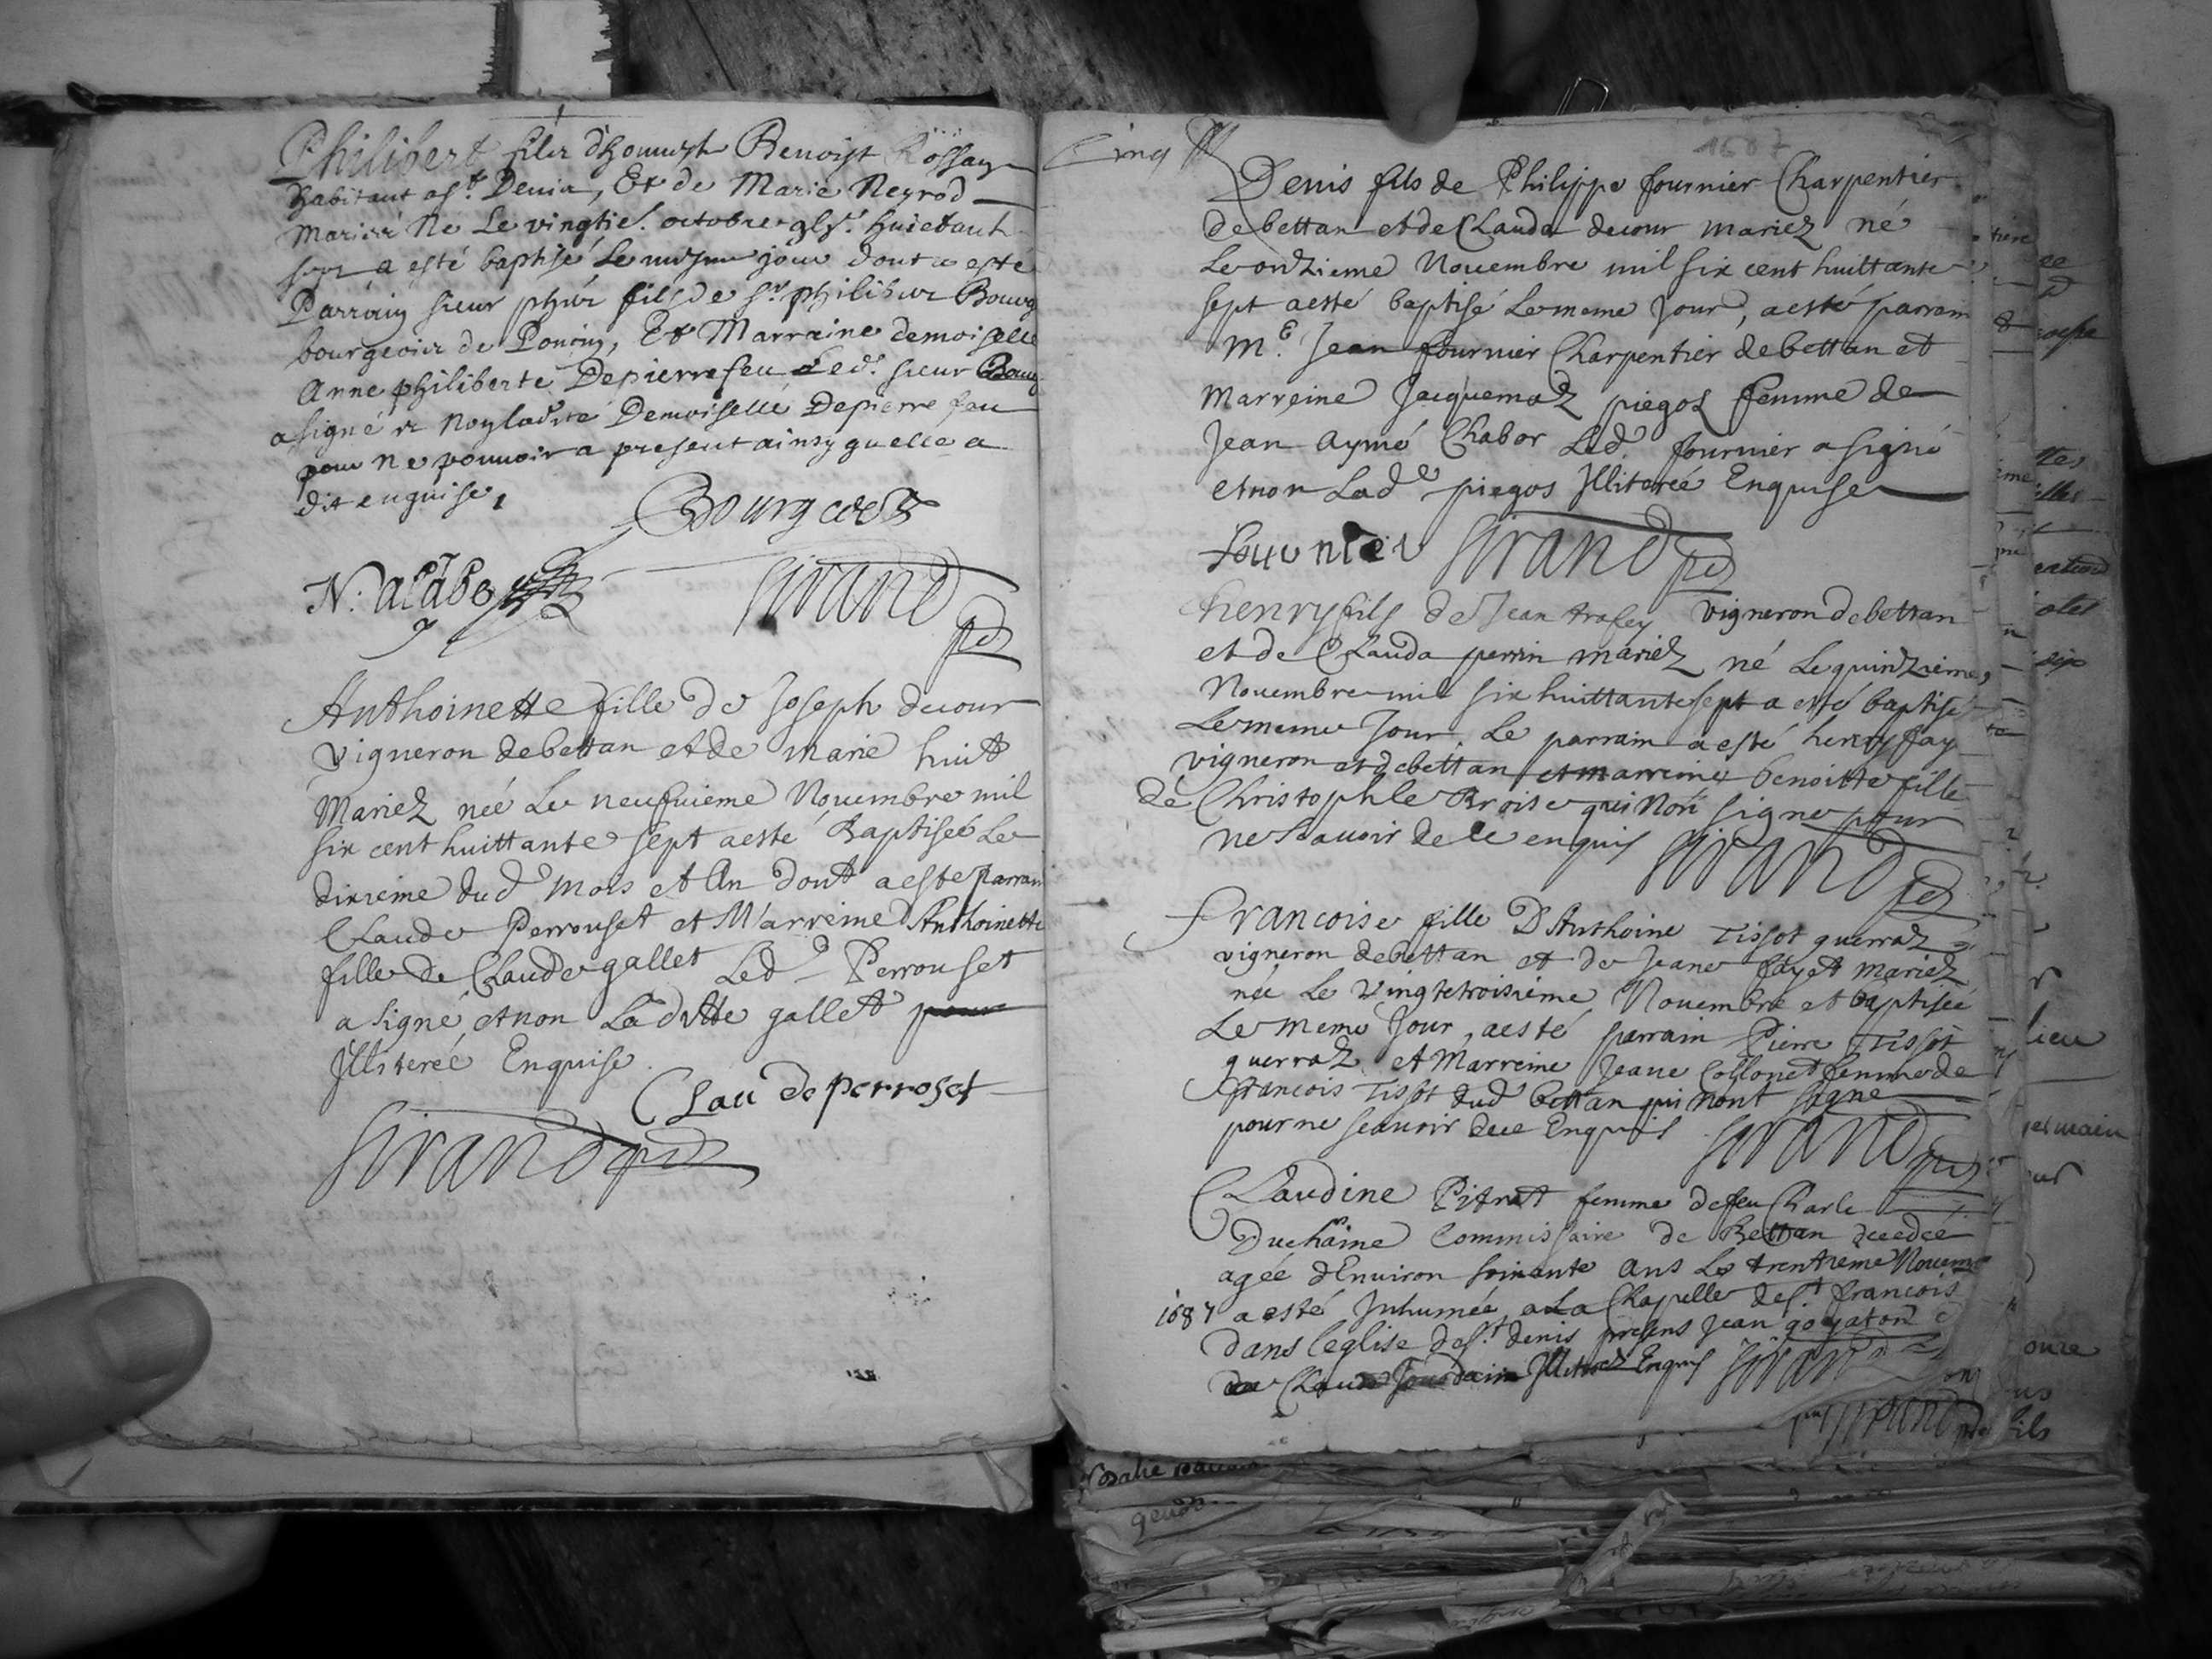 Philibert fils d'honneste Benoist Rossay
habitant a St. Denis, Et de Marie Neyrod
mariés Né Le vingtie. octobre huictante
sept a esté baptisé Le mesme jour dont a esté
Parrain sieur fils de Sr. philibert Bourg
bourgeois de Poncin, Et Marraine demoiselle
Anne philiberte Depierrefeu Led. sieur Bourg
a signé et non ladite Demoiselle Depierrefeu
pour ne pouvoir a present ainsy quelle a
dit enquise,
Bourgeois
Sirand
Anthoinette fille de Joseph decour
Vigneron debettan et de marie huit
Mariez neé Le neufvieme Novembre mil
six cent huittante sept a esté Baptiseé Le
dixieme dud mois et An dont a esté parrain
Claude Perrouset et Marreine Anthoinette
fille de Claude gallet Led Perrouset
a signé, et non Laditte gallet pour
Illitereé Enquise.
Clau de perroset
Sirand
Cinq
1687
Denis fils de Philippe fournier Charpentier
de bettan et de Clauda decour mariez né
Le onzieme Novembre mil six cent huittante
sept a esté baptisé Le meme Jour, a esté parrain
Me. Jean fournier Charpentier debettan et
Marreine Jacquemaz piegos femme de
Jean Aymé Chabor Led. fournier a signé
et non Lade piegos Illitereé Enquise
fournier Sirand
henry fils de Jean trafey vigneron debettan
et de Clauda perrin mariez né Le quinzieme
Novembre mil six huittante sept a esté baptisé
Le meme Jour. Le parrain a esté henry fay
vigneron et debettan et marreine benoitte fille
de Christophle Broise qui nont signe pour
ne Scavoir de ce enquis Sirand
francoise fille D'Anthoine Tissot guerraz
vigneron debettan et de Jeane fayet mariez
née Le vingtetroisieme Novembre et baptiseé
Le meme Jour, a esté parrain Pierre Tissot
guerraz et Marreine Jeane Collonet femme de
francois Tissot dud bettan qui nont signe
pour ne scavoir de ce Enquis Sirand
Claudine Pitrat femme defeu Charle
Duchaine Commissaire de Bettan decedeé
ageé d'Environ soixante ans Le trentieme Novembre
1687 a esté Inhumeé a La Chapelle de St. francois
dans leglise de St. denis presens Jean goyaton
Claude Jourdain Illiterez Enquis Sirand